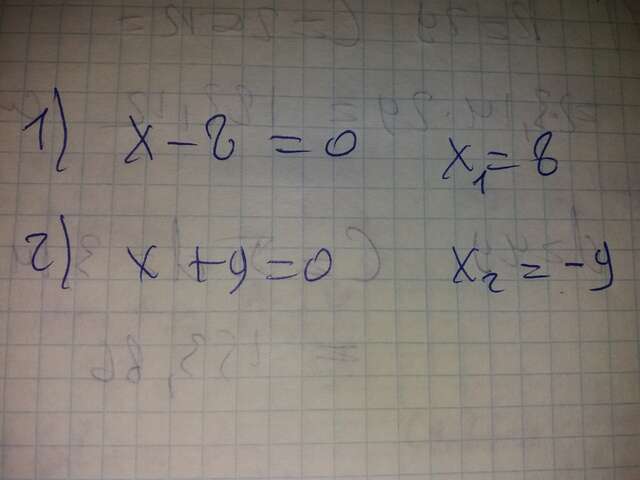 1) x - 8 = 0 x₁ = 8
2) x + 9 = 0 x₂ = -9